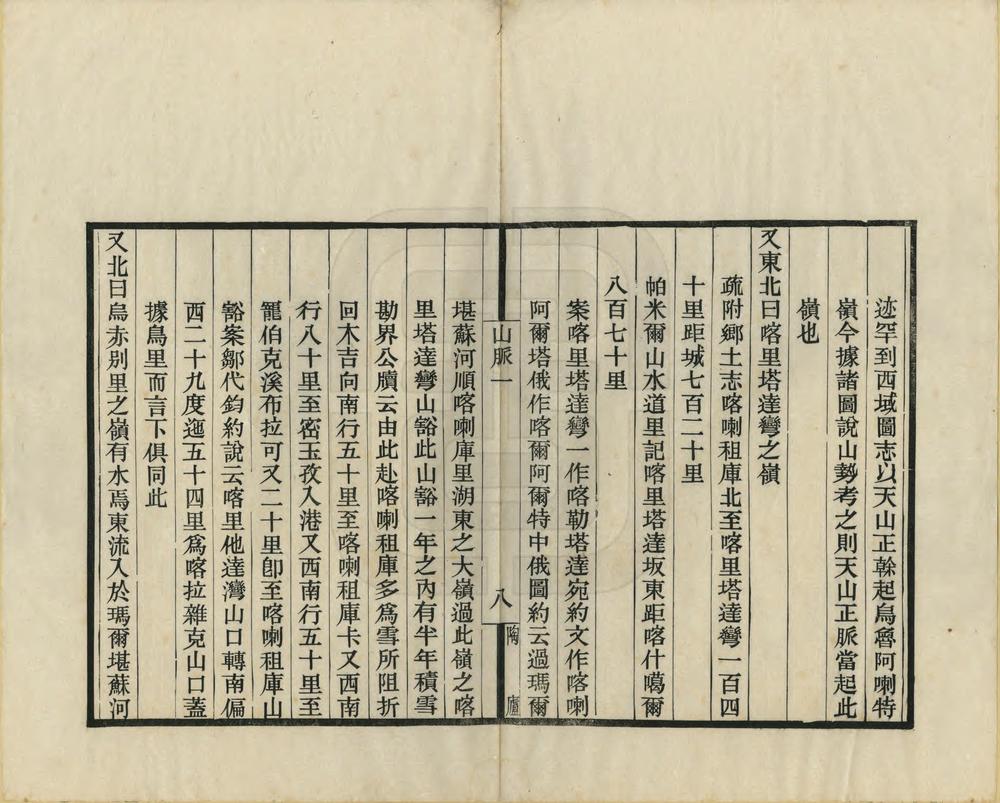 迹罕到西域圖志以天山正榦起烏魯阿喇特
嶺今據諸圖說山勢考之則天山正脈當起此
嶺也
又東北曰喀里塔達彎之嶺
疏附鄉土志喀喇租庫北至喀里塔達彎一百四
十里距城七百二十里
帕米爾山水道里記喀里塔達坂東距喀什噶爾
八百七十里
案喀里塔達彎一作喀勒塔達宛約文作喀喇
阿爾塔俄作喀爾阿爾特中俄圖約云過瑪爾
山脈一
八
陶廬
堪蘇河順喀喇庫里湖東之大嶺過此嶺之喀
里塔達彎山豁此山豁一年之內有半年積雪
勘界公牘云由此赴喀喇租庫多爲雪所阻折
回木吉向南行五十里至喀喇租庫卡又西南
行八十里至密玉孜入港又西南行五十里至
罷伯克溪布拉可又二十里卽至喀喇租庫山
豁案鄒代鈞約說云喀里他達灣山口轉南偏
西二十九度迤五十四里爲喀拉雜克山口蓋
據鳥里而言下俱同此
又北曰烏赤別里之嶺有水焉東流入於瑪爾堪蘇河